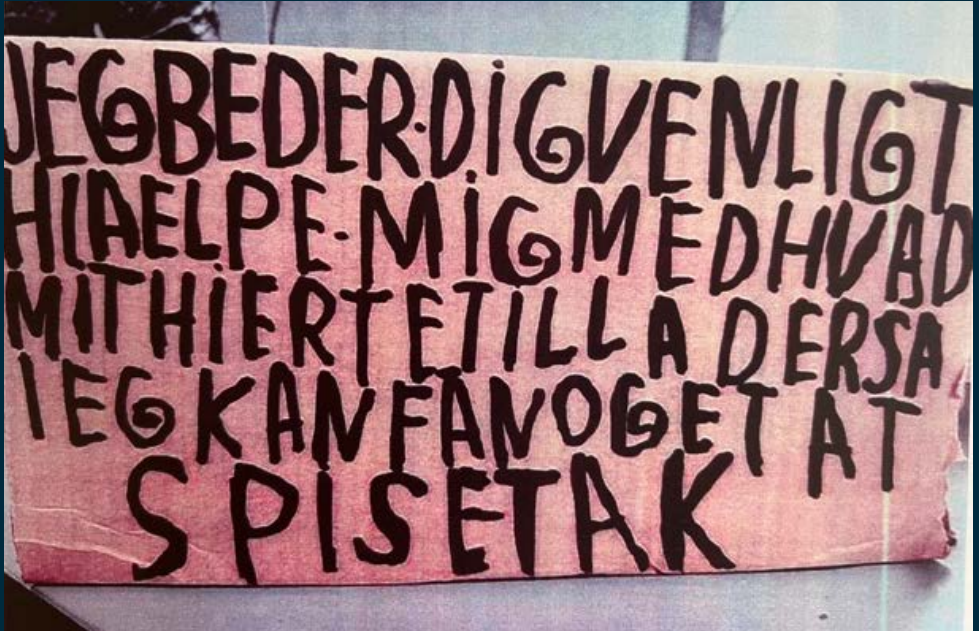 JEGBEDER·DiGVENLIGT
HIAELPE·MiGMEDHVAD
MiTHiERTETiLLADERSA
IEGKANFANOGET AT
SPiSETAK